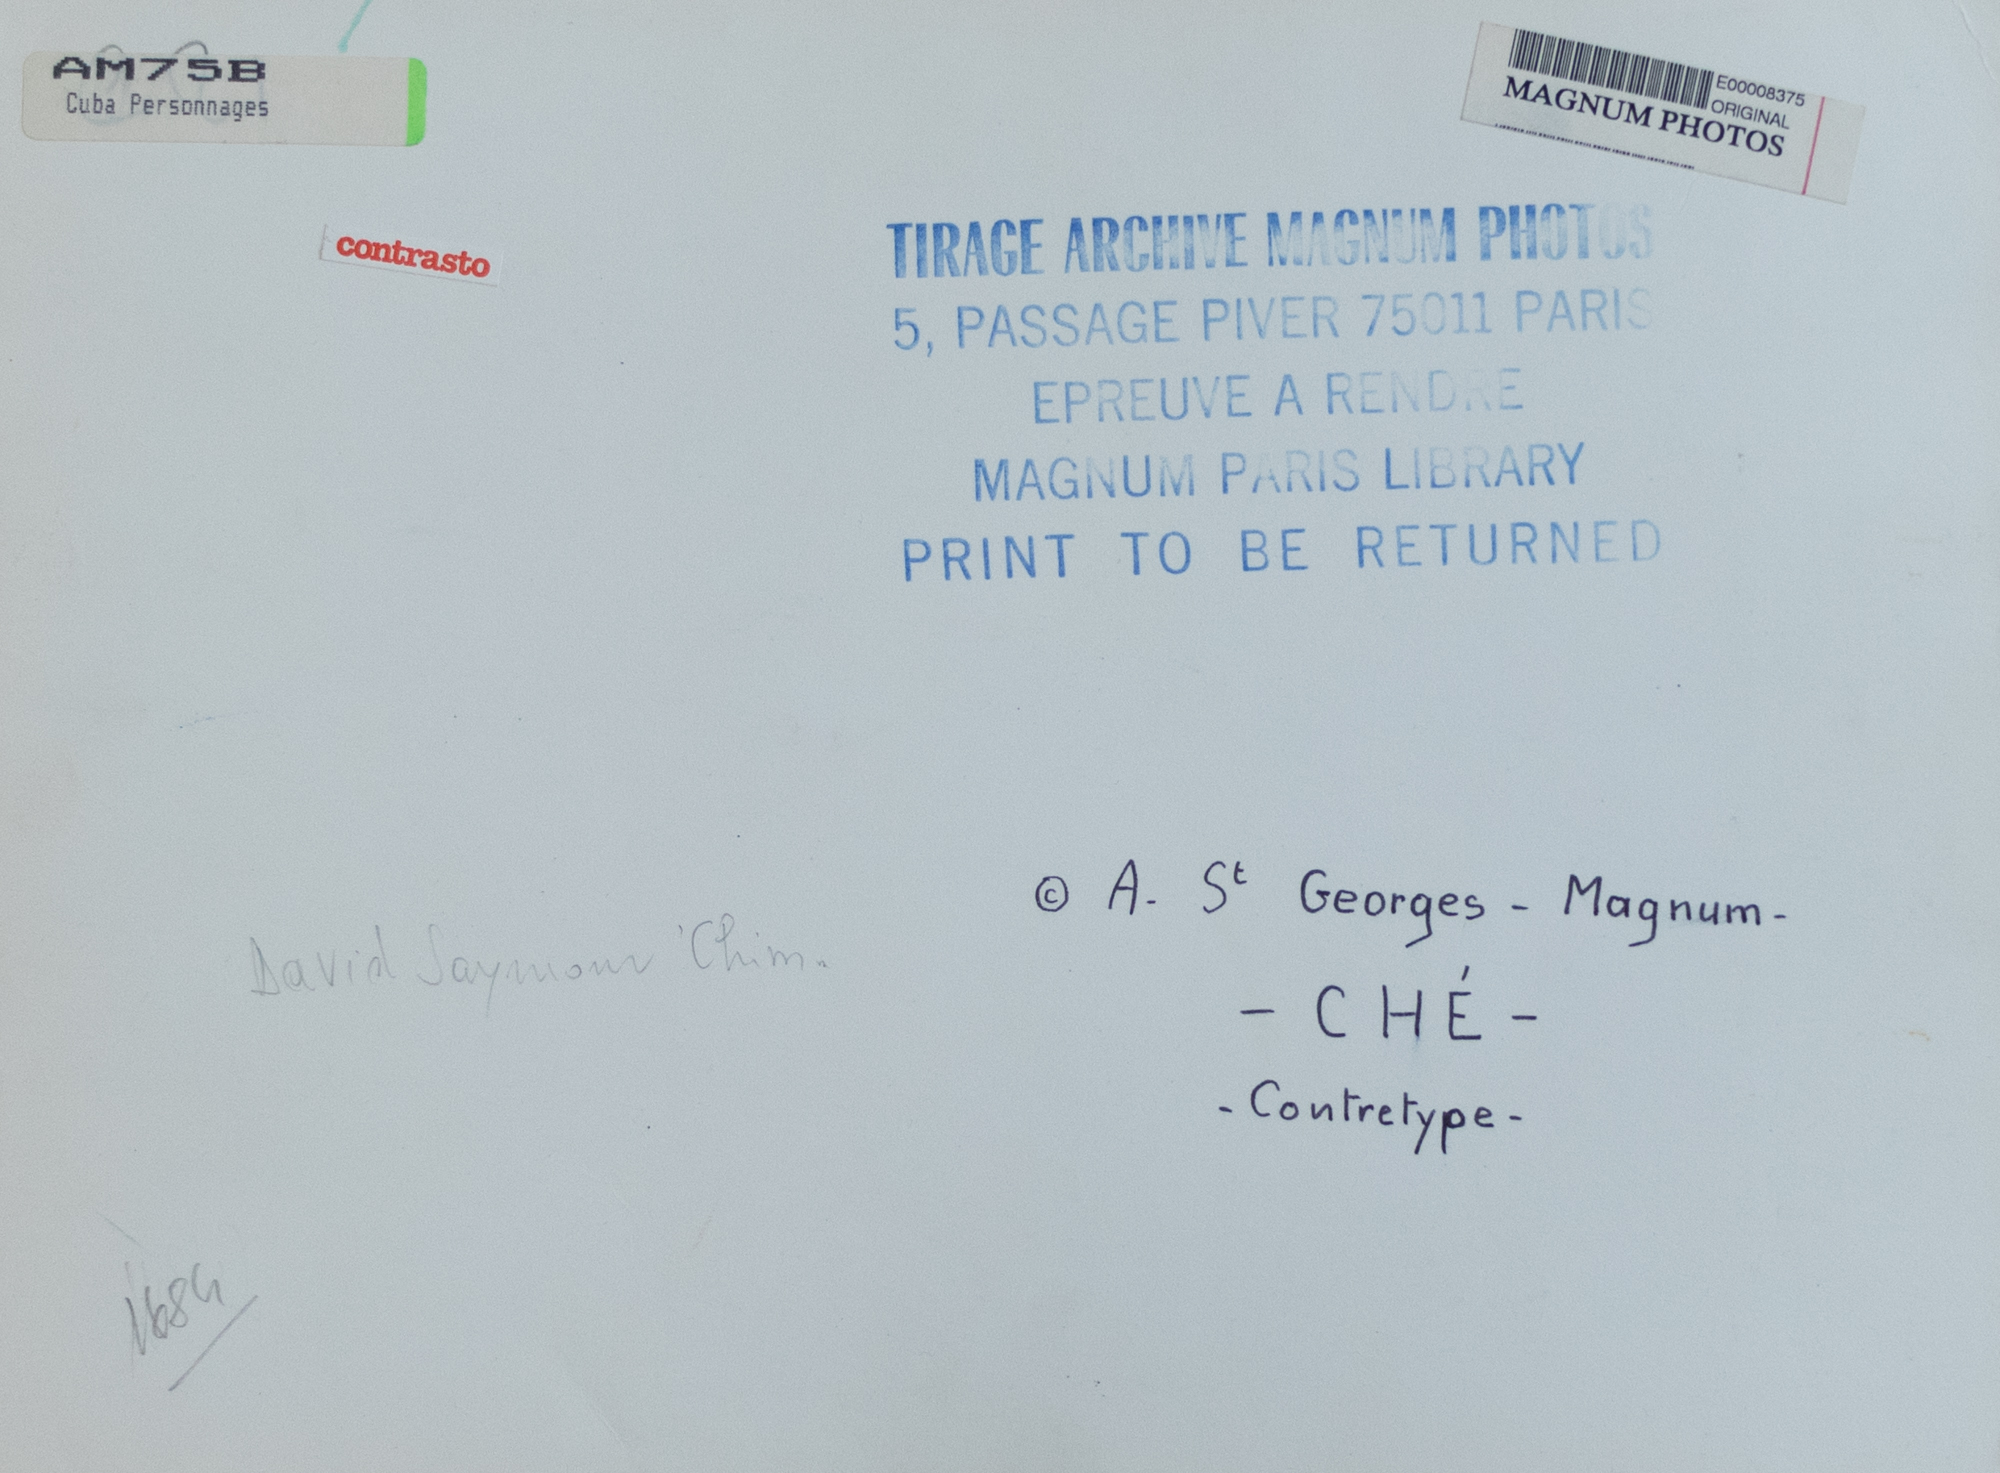 AM75B
Cuba Personnages
E00008375
ORIGINAL
MAGNUM PHOTOS
contrasto
TIRAGE ARCHIVE MAGNUM PHOTOS
5, PASSAGE PIVER 75011 PARIS
EPREUVE A RENDRE
MAGNUM PARIS LIBRARY
PRINT TO BE RETURNED
© A. St Georges - Magnum -
- CHÉ -
- Contretype -
David Saymour 'Chim.
1684